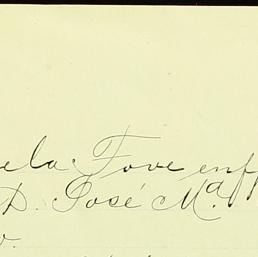 ela Tove enf
D. José Mª
o.